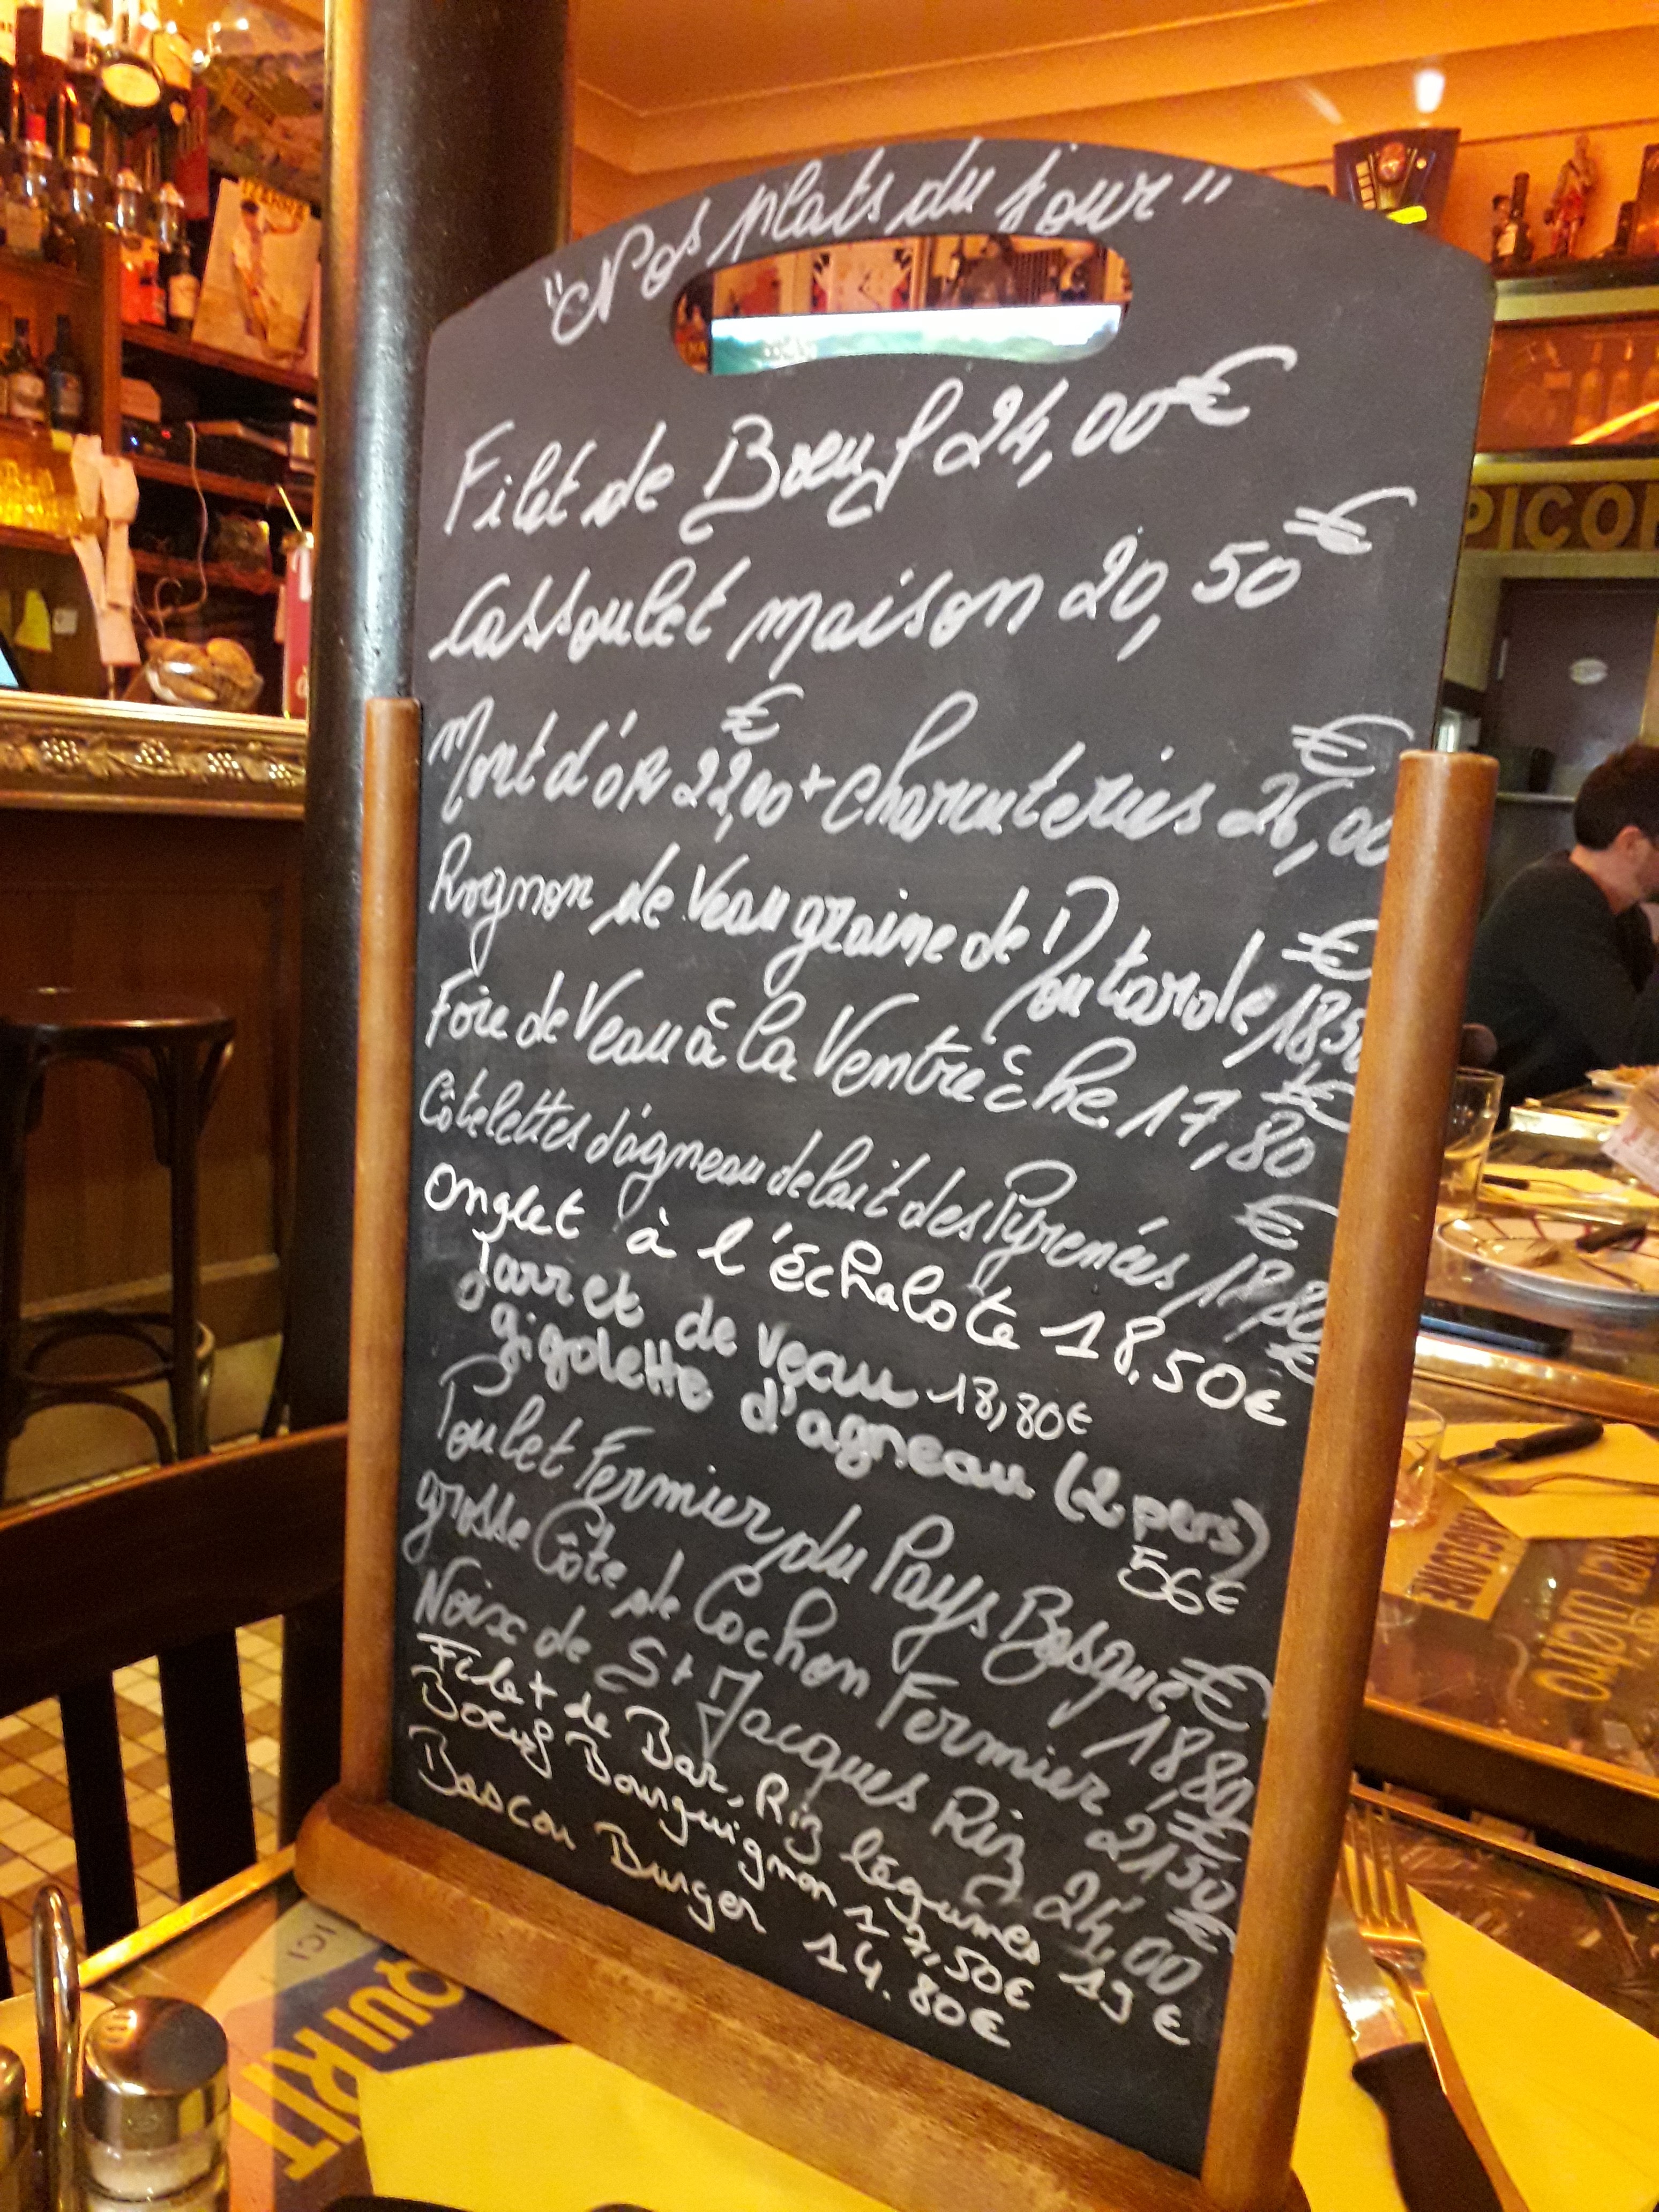 "Nos plats du jour"
Filet de Bœuf 24,00€
Cassoulet maison 20,50€
Mont d'or 22,00€ + charcuteries 26,00€
Rognon de Veau graine de Moutarde 18,50€
Foie de Veau à la Ventrèche 17,80€
Côtelettes d'agneau de lait des Pyrenées 18,80€
Onglet à l'échalote 18,50€
Jarret de veau 18,80€
gigolette d'agneau (2 pers)
56€
Poulet Fermier du Pays Basque 18,80€
grosse Côte de Cochon Fermier 21,50€
Noix de St Jacques Riz 24,00€
Filet de Bar, Riz légumes 19€
Boeuf Bourguignon 17,50€
Bascou Burger 14.80€
PICON
QUI RIT
ICI